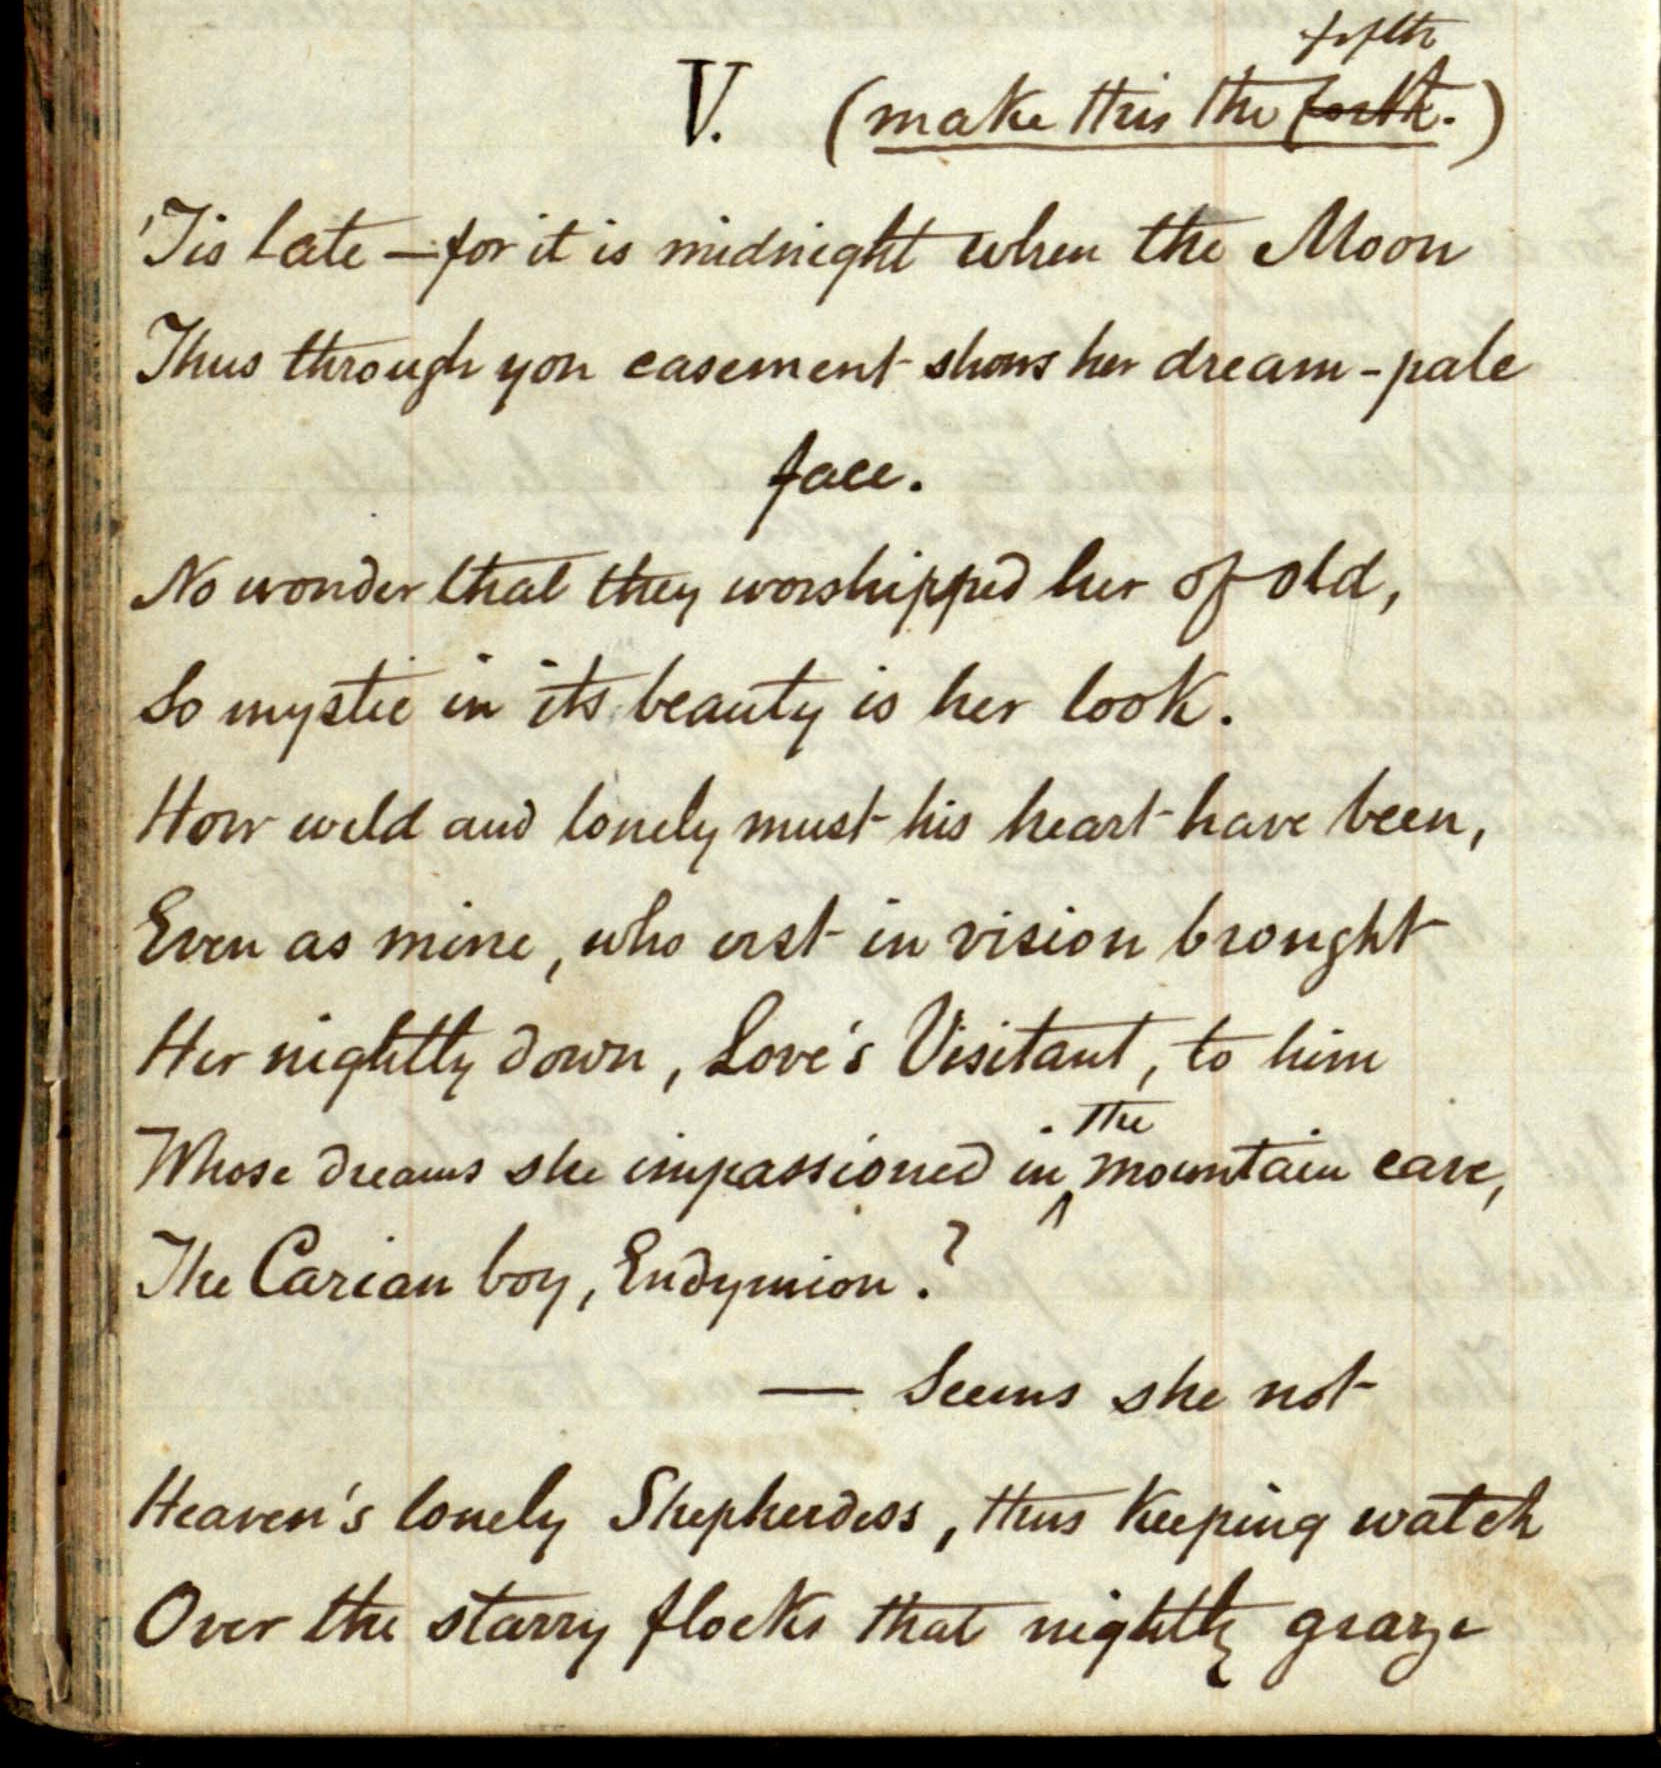 fifth
V. (make this the forth.)
'Tis late — for it is midnight when the Moon
Thus through yon casement shows her dream-pale
face.
No wonder that they worshipped her of old,
So mystic in its beauty is her look.
How wild and lonely must his heart have been,
Even as mine, who erst in vision brought
Her nightly down, Love's Visitant, to him
the
Whose dreams she impassioned in mountain cave,
The Carian boy, Endymion?
— Seems she not
Heaven's lonely Shepherdess, thus keeping watch
Over the starry flocks that nightly graze